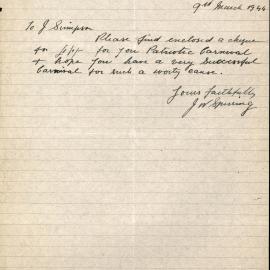 9th March 1944
To J Simpson
Please find enclosed a cheque
for for you Patriotic Carnival
& hope you have a very successful
Carnival for such a worty cause.
Yours faithfully
J W